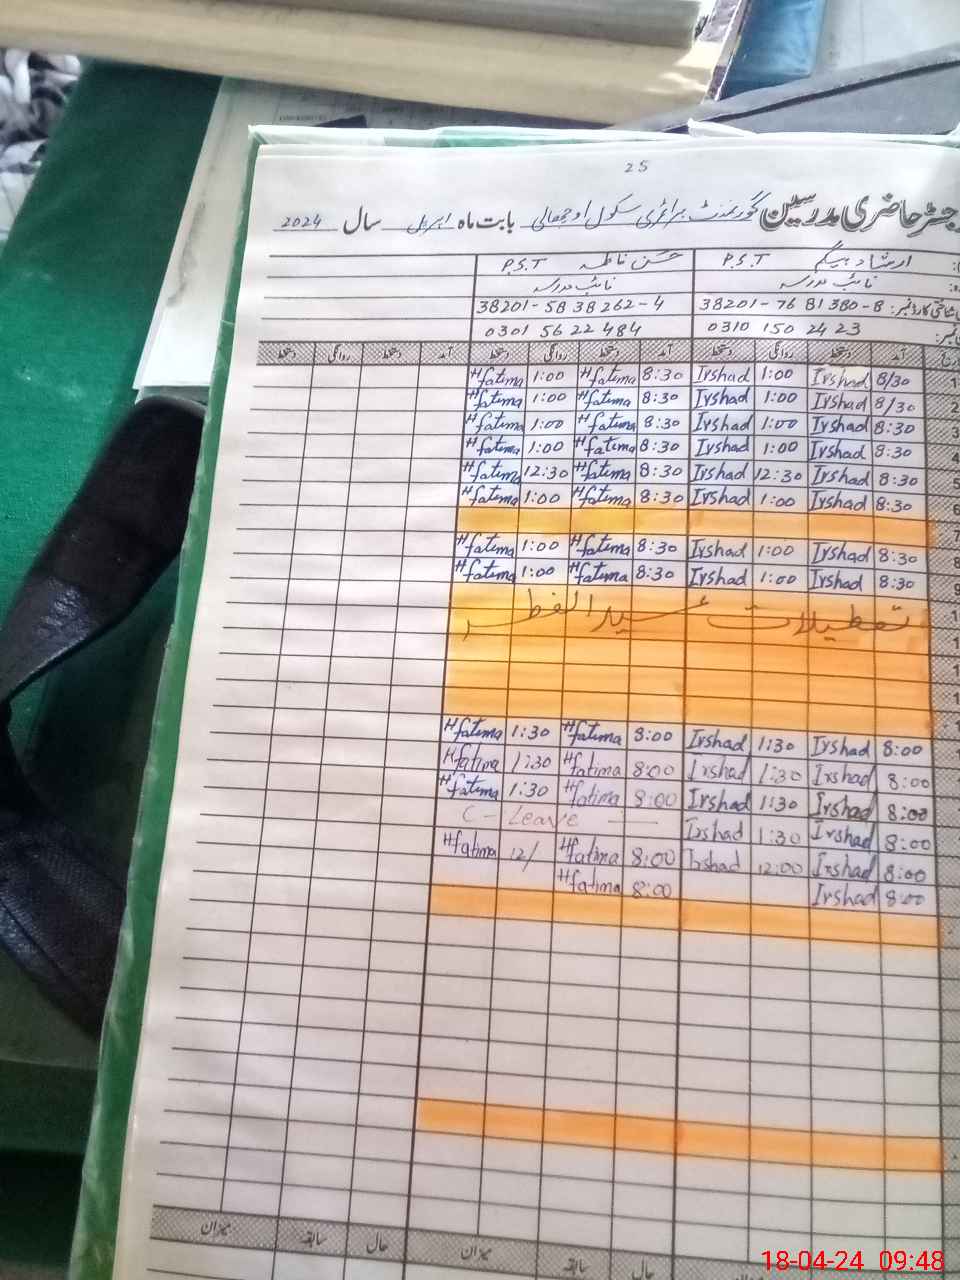 25
رجسٹر حاضری مدرسین گورنمنٹ پرائمری سکول اوچھالی بابت ماہ اپریل سال 2024
ارشاد بیگم P.S.T حسن فاطمہ P.S.T
نائب مدرسہ نائب مدرسہ
شناختی کارڈ نمبر: 38201-7681380-8 38201-5838262-4
0310 150 24 23 0301 56 22 484
آمد دستخط روانگی دستخط آمد دستخط روانگی دستخط آمد دستخط روانگی دستخط
8/30 Irshad 1:00 Irshad 8:30 Hfatima 1:00 Hfatima
8/30 Irshad 1:00 Irshad 8:30 Hfatima 1:00 Hfatima
8:30 Irshad 1:00 Irshad 8:30 Hfatima 1:00 Hfatima
8:30 Irshad 1:00 Irshad 8:30 Hfatima 1:00 Hfatima
8:30 Irshad 12:30 Irshad 8:30 Hfatima 12:30 Hfatima
8:30 Irshad 1:00 Irshad 8:30 Hfatima 1:00 Hfatima
8:30 Irshad 1:00 Irshad 8:30 Hfatima 1:00 Hfatima
8:30 Irshad 1:00 Irshad 8:30 Hfatima 1:00 Hfatima
تعطیلات عیدالفطر
8:00 Irshad 1:30 Irshad 8:00 Hfatima 1:30 Hfatima
8:00 Irshad 1:30 Irshad 8:00 Hfatima 1:30 Hfatima
8:00 Irshad 1:30 Irshad 8:00 Hfatima 1:30 Hfatima
8:00 Irshad 1:30 Irshad C - Leave
8:00 Irshad 12:00 Irshad 8:00 Hfatima 12/ Hfatima
8:00 Irshad 8:00 Hfatima
سابقہ میزان حال سابقہ میزان
18-04-24 09:48